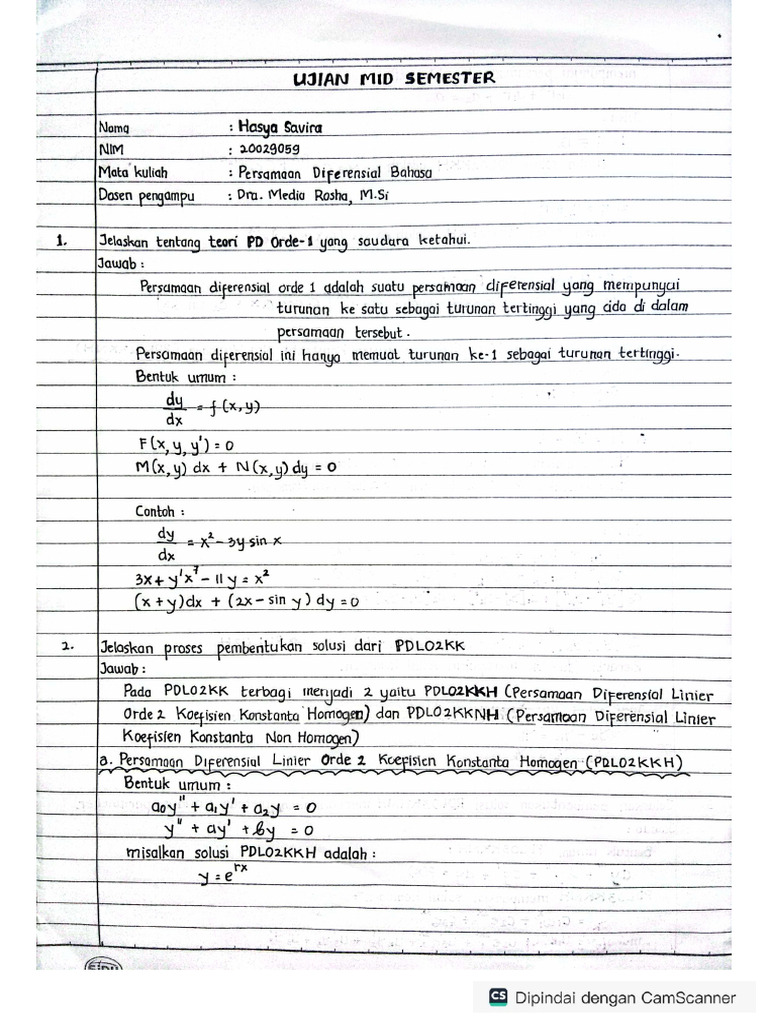 UJIAN MID SEMESTER
Nama : Hasya Savira
NIM : 20029059
Mata kuliah : Persamaan Diferensial Bahasa
Dosen pengampu : Dra. Media Rosha, M.Si
1. Jelaskan tentang teori PD Orde-1 yang saudara ketahui.
Jawab :
Persamaan diferensial orde 1 adalah suatu persamaan diferensial yang mempunyai
turunan ke satu sebagai turunan tertinggi yang ada di dalam
persamaan tersebut.
Persamaan diferensial ini hanya memuat turunan ke-1 sebagai turunan tertinggi.
Bentuk umum :
dy/dx = f(x,y)
F(x, y, y') = 0
M(x,y) dx + N(x,y) dy = 0
Contoh :
dy/dx = x² - 3y sin x
3x + y'x⁷ - 11y = x²
(x + y)dx + (2x - sin y) dy = 0
2. Jelaskan proses pembentukan solusi dari PDLO2KK
Jawab :
Pada PDLO2KK terbagi menjadi 2 yaitu PDLO2KKH (Persamaan Diferensial Linier
Orde 2 Koefisien Konstanta Homogen) dan PDLO2KKNH (Persamaan Diferensial Linier
Koefisien Konstanta Non Homogen)
a. Persamaan Diferensial Linier Orde 2 Koefisien Konstanta Homogen (PDLO2KKH)
Bentuk umum :
a₀y'' + a₁y' + a₂y = 0
y'' + ay' + by = 0
misalkan solusi PDLO2KKH adalah :
y = eʳˣ
SIDU
CS Dipindai dengan CamScanner